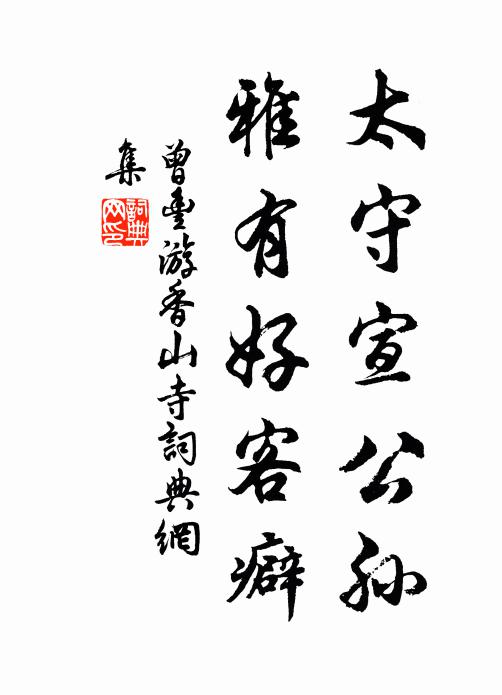 太守宣公孙
雅有好客癖
曾豊游香山寺詞典網
集
詞典
网印